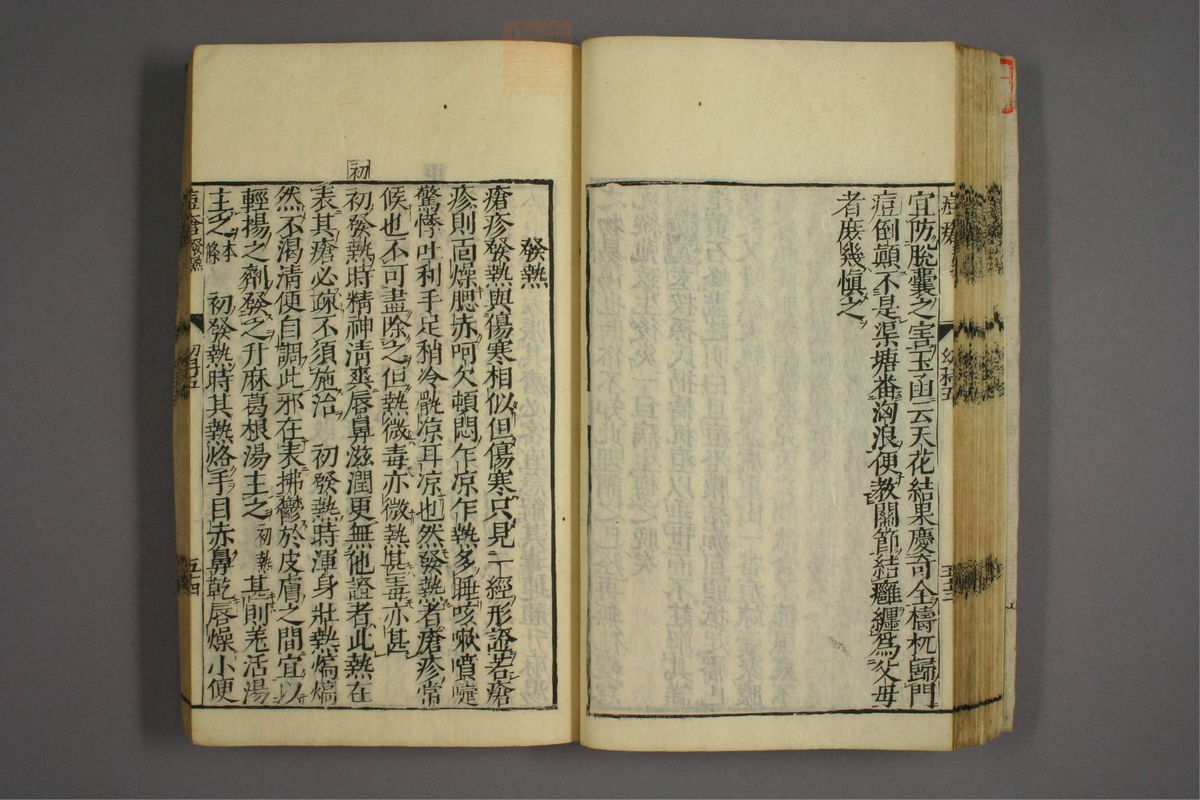 宜防脫囊之害玉函云天花結果慶奇全檮杌歸門
痘倒顚不是渠塘畨洶浪便敎關節結癰纏爲父母
者庶幾愼之
發熱
瘡疹發熱與傷寒相似但傷寒只見一經形證若瘡
疹則面燥腮赤呵欠頓悶乍凉乍熱多睡咳嗽噴嚏
驚悸吐利手足稍冷骩凉耳凉也然發熱者瘡疹常
候也不可盡除之但熱微毒亦微熱甚毒亦甚
初
初發熱時精神淸爽唇鼻滋潤更無他證者此熱在
表其瘡必疎不須施治 初發熱時渾身壯熱熇熇
然不渴淸便自調此邪在表拂鬱於皮膚之間宜以
輕揚之劑發之升麻葛根湯主之 初熱 甚則羗活湯
主之 本條 初發熱時其熱烙手目赤鼻乾唇燥小便
痘瘡 發熱 幼科五 五十四